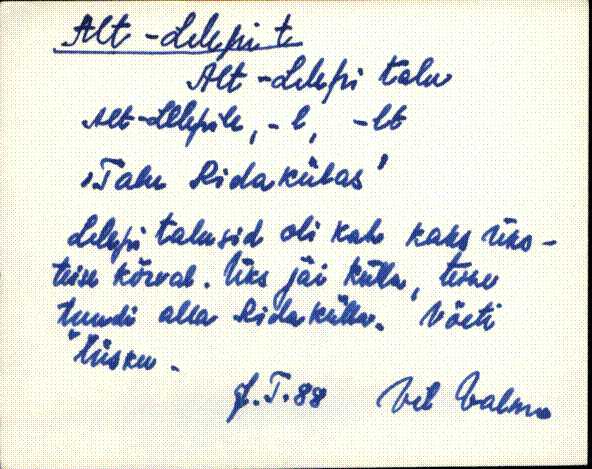 Alt-Lelepi t
Alt-Lelepi talu
Alt-Lelepile, -l, -lt
"Talu Ridakülas"
Lelepi talusid oli kaks üks-
teise kõrval. Üks jäi külla, teine
tuundi alla Ridakülla. Võeti
tüsku.
J.T.88